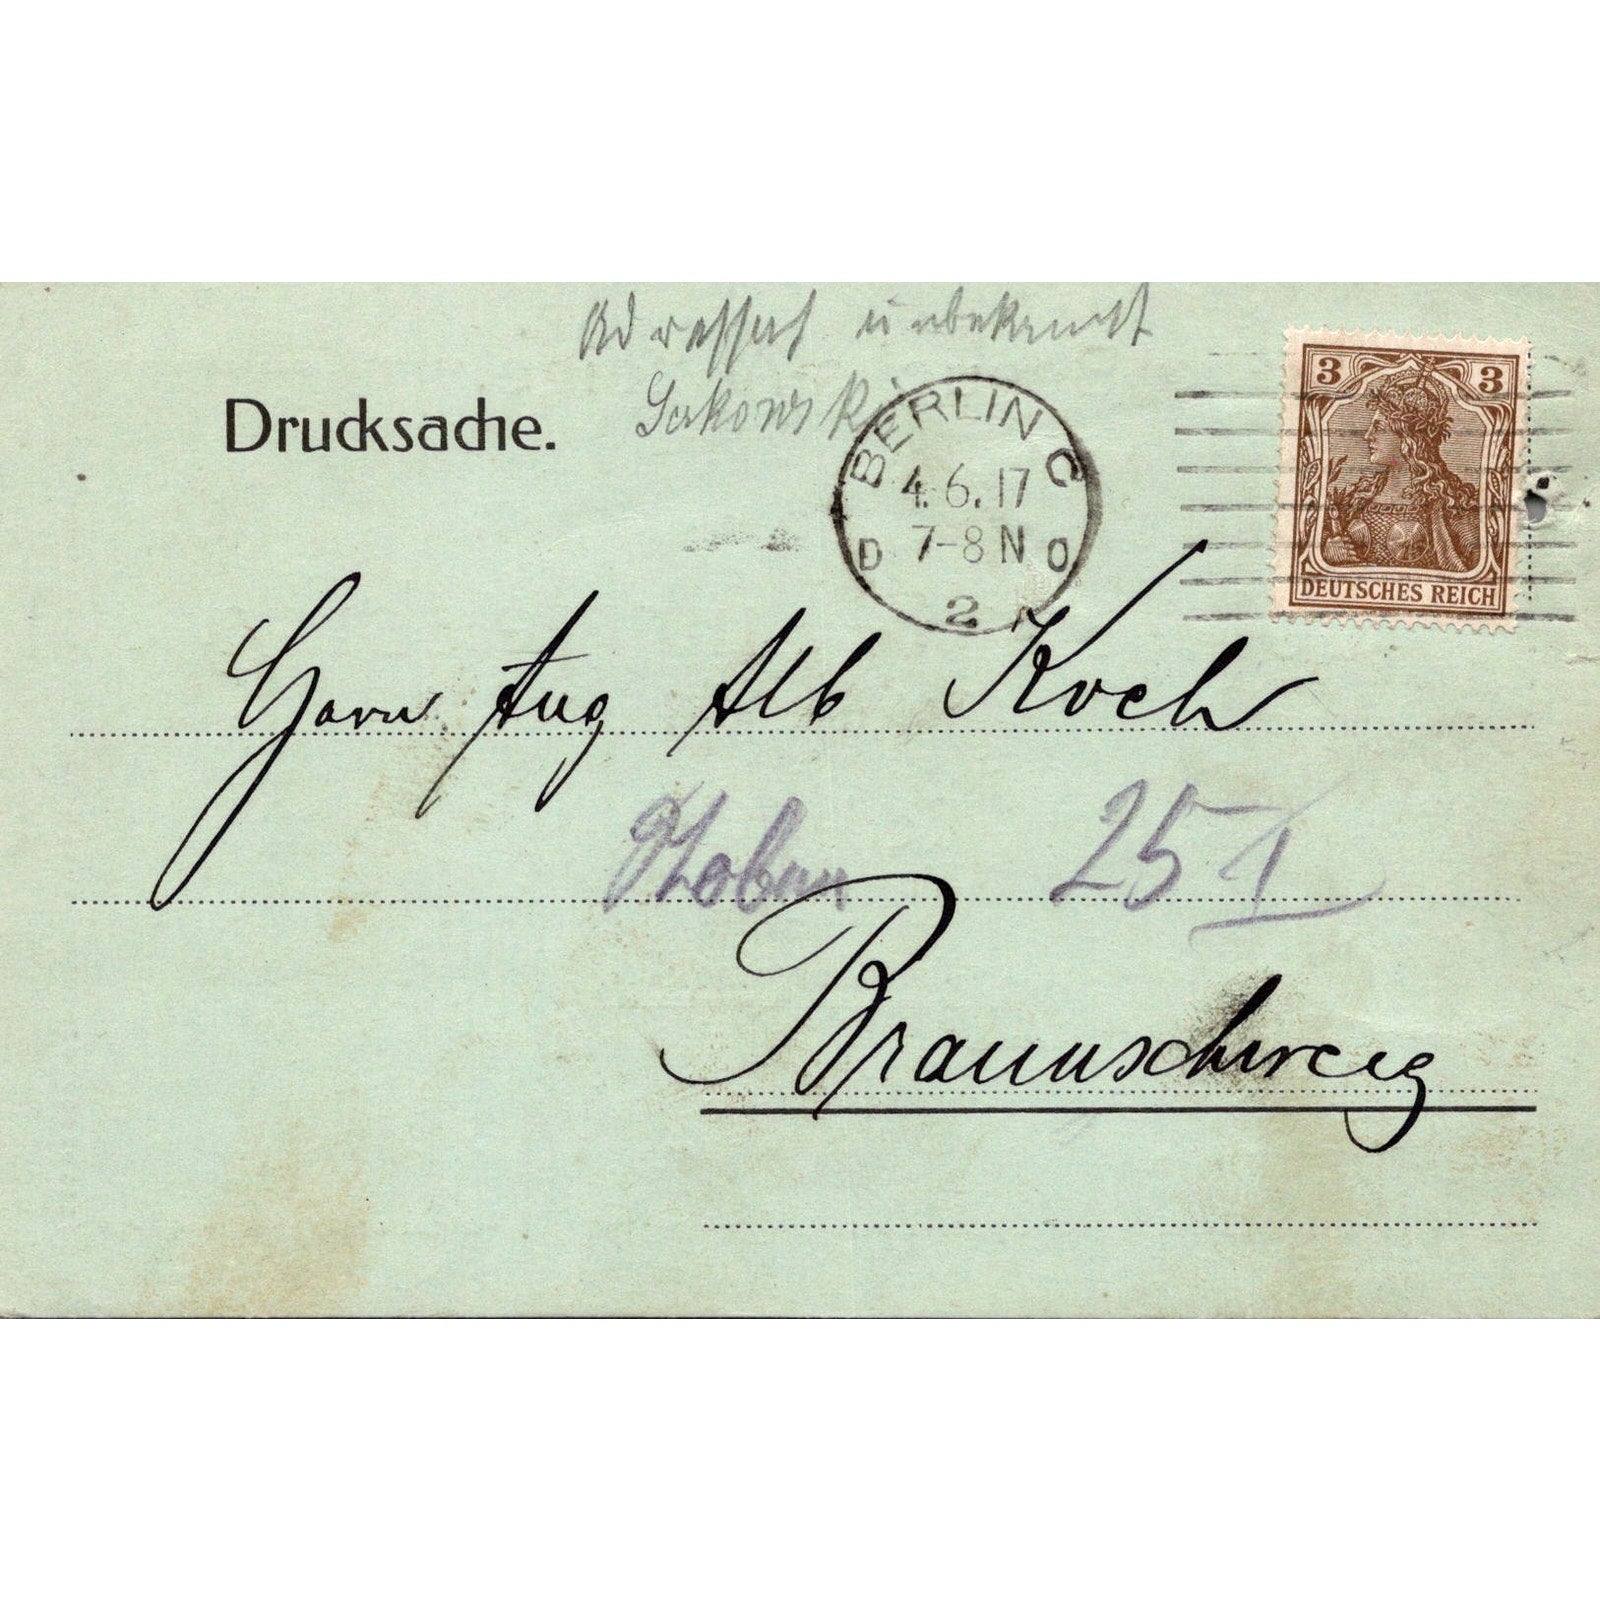 Adressat unbekannt
Sakowski
Drucksache.
BERLIN C
4.6.17
7-8 N
2
3 3
DEUTSCHES REICH
Herrn Aug Alb Koch
25 I
Braunschweig